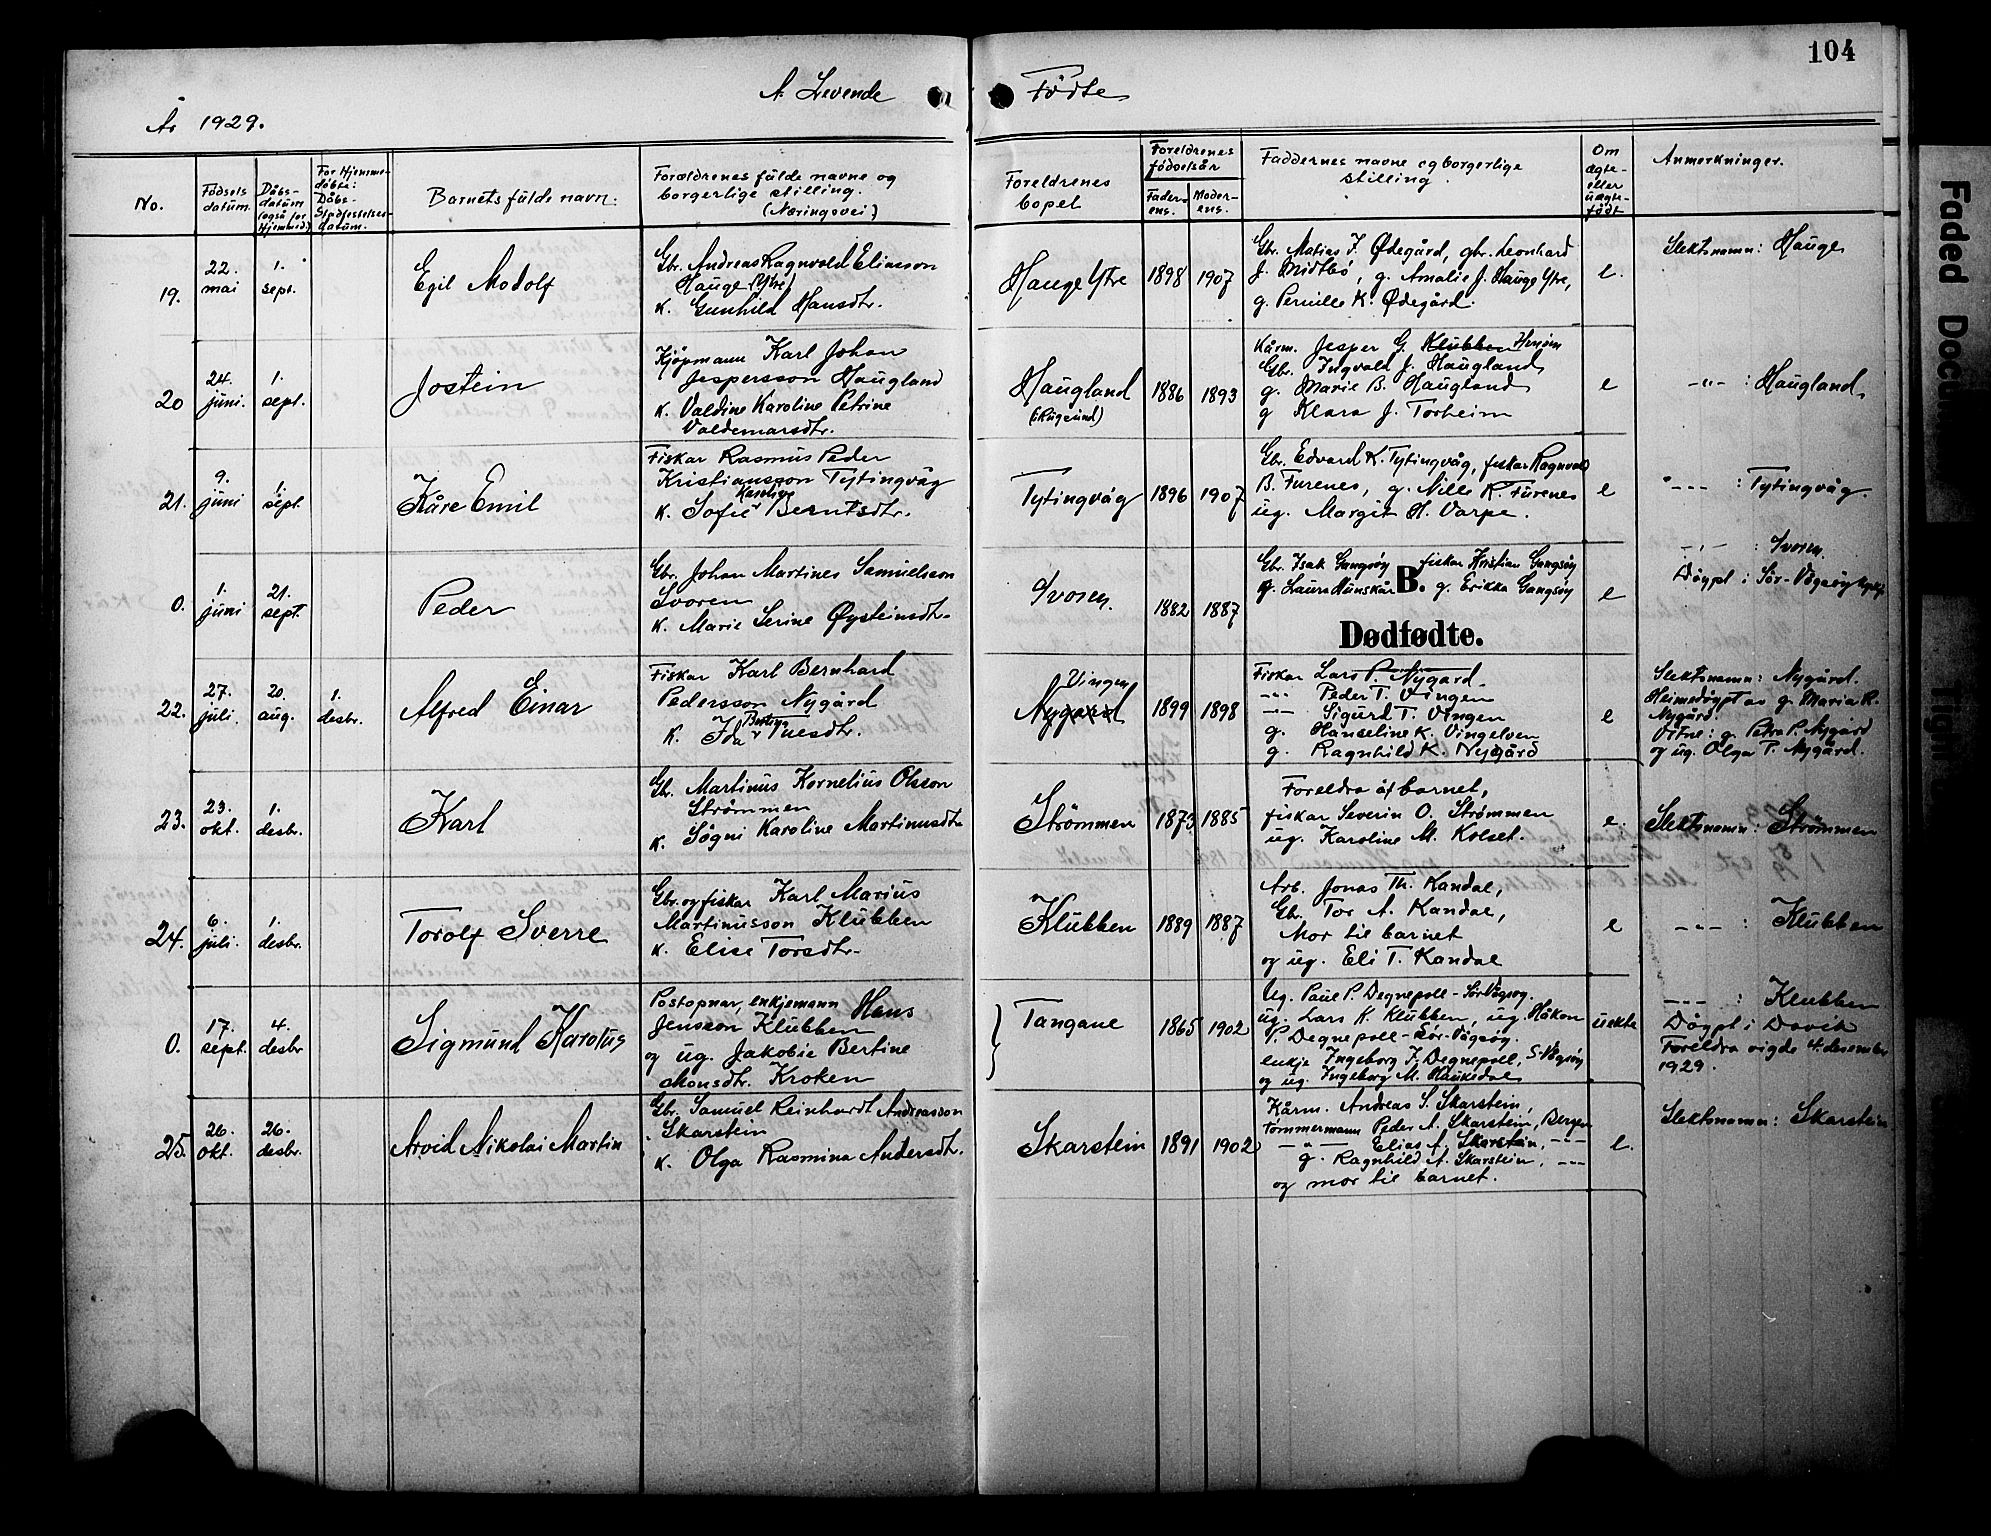 104
A. Levende Födte
År 1929.
No.
Födsels
datum.
Dåbs-
datum
(også for
Hjemmed.)
For Hjemme-
döbte:
Dåbs-
Stadfestelses-
datum.
Barnets fulde navn:
Forældrenes fulde navne og
borgerlige stilling.
(Næringsvei)
Foreldrenes
bopel
Foreldrenes
födselsår
Fader-
ens.
Moder-
ens.
Faddernes navne og borgerlige
stilling.
Om
ægte-
eller
uægte-
født
Anmerkninger.
19.
22.
mai
1.
sept.
Egil Modolf
Gbr. Andreas Ragnvald Eliasson
Hauge (Ytre)
K. Gunhild Hansdtr.
Hauge Ytre
1898
1907
Gbr. Matias J. Ødegård, gbr. Leonhard
J. Midtbö, g. Amalie J. Hauge Ytre,
g. Pernille K. Ødegård.
e.
Slektsnamn: Hauge
20
24.
juni.
1.
sept.
Jostein
Kjöpmann Karl Johan
Jespersson Haugland
K. Valdine Karoline Petrine
Valdemarsdtr.
Haugland
(Rugsund)
1886
1893
Kårm. Jesper G. Klubben
Gbr. Ingvald J. Haugland
g. Marie B. Haugland
g Klara J. Torheim
e
-"- : Haugland.
21.
9.
juni
1.
sept.
Kåre Emil
Fiskar Rasmus Peder
Kristiansson Tytingvåg
K. Sofie Karoline Berntsdtr.
Tytingvåg
1896
1907
Gbr. Edvard K. Tytingvåg, fiskar Ragnvald
B. Furenes, g. Nille K. Furenes
ug. Margit H. Varpe.
e
-"- : Tytingvåg.
0.
1.
juni
21.
sept.
Peder
Gbr. Johan Martines Samuelsson
Svoren
K. Marie Serine Øysteinsdtr.
Svoren.
1882
1887
Gbr. Isak Gangsöy fiskar Kristian Gangsöy
g. Laura Hunskår g. Erikka Gangsöy
B.
Dødfødte.
e
-"- : Svoren.
Döypt i Sör-Vågsöy
22.
27.
juli.
20.
aug.
1.
desbr.
Alfred Einar
Fiskar Karl Bernhard
Pedersson Nygård
K. Ida Bertine Tuesdtr.
Vingen
Nygård
1899
1898
Fiskar Lars P. Nygard
-"- Peder T. Vingen
-"- Sigurd T. Vingen
g. Hanseline K. Vingelven
g. Ragnhild K. Nygård
e
Slektsnamn: Nygård.
Heimedöypt av g. Maria R.
Nygård.
Vitne: g. Petra P. Nygård
og ug. Olga P. Nygård.
23.
23.
okt.
1.
desbr.
Karl
Gbr. Martinus Kornelius Olsson
Strömmen
K. Sögni Karoline Martinusdtr
Strömmen
1873
1885
Foreldra åt barnet,
fiskar Severin O. Strömmen
ug. Karoline M. Kolset.
e.
Slektsnamn: Strömmen
24.
6.
juli.
1.
desbr.
Torolf Sverre
Gbr. og fiskar Karl Marius
Martinusson Klubben
K. Elise Torsdtr.
Klubben
1889
1887
Arb. Jonas Th. Kandal,
Gbr. Tor A. Kandal,
Mor til barnet
og ug. Eli T. Kandal
e
-"- : Klubben
0.
17.
sept.
4.
desbr
Sigmund Karolus
Postopnar, enkjemann Hans
Jensson Klubben
og ug. Jakobie Bertine
Monsdtr. Kroken
Tangane
1865
1902
Ug. Paul P. Degnepoll - Sör Vågsöy.
ug. Lars K. Klubben, ug. Håkon
P. Degnepoll - Sör-Vågsöy.
enkje Ingeborg J. Degnepoll, S-Vågsöy
og ug. Ingeborg M. Haukedal
uekte
-"- : Klubben
Döypt i Davik
Foreldra vigde 4. desember
1929.
25.
26.
okt.
26.
desbr.
Arvid Nikolai Martin
Gbr. Samuel Reinhardt Andreasson
Skarstein
K. Olga Rasmina Andersdtr.
Skarstein
1891
1902
Kårm. Andreas S. Skarstein,
Tömmermann Peder A. Skarstein, Bergen
-"- Elias A. Skarstein, -"-
g. Ragnhild A. Skarstein, -"-
og mor til barnet.
e.
Slektsnamn: Skarstein
Faded Docu
Tight